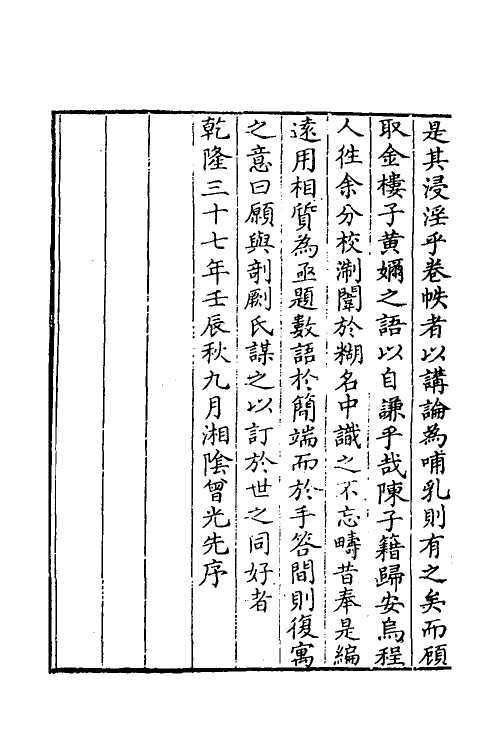 是其浸淫乎卷帙者以講論為哺乳則有之矣而顧
取金樓子黃嬭之語以自謙乎哉陳子籍歸安烏程
人徃余分校淛闈於糊名中識之不忘疇昔奉是編
遠用相質為亟題數語於簡端而於手答間則復寓
之意曰願與剞劂氏謀之以訂於世之同好者
乾隆三十七年壬辰秋九月湘陰曾光先序